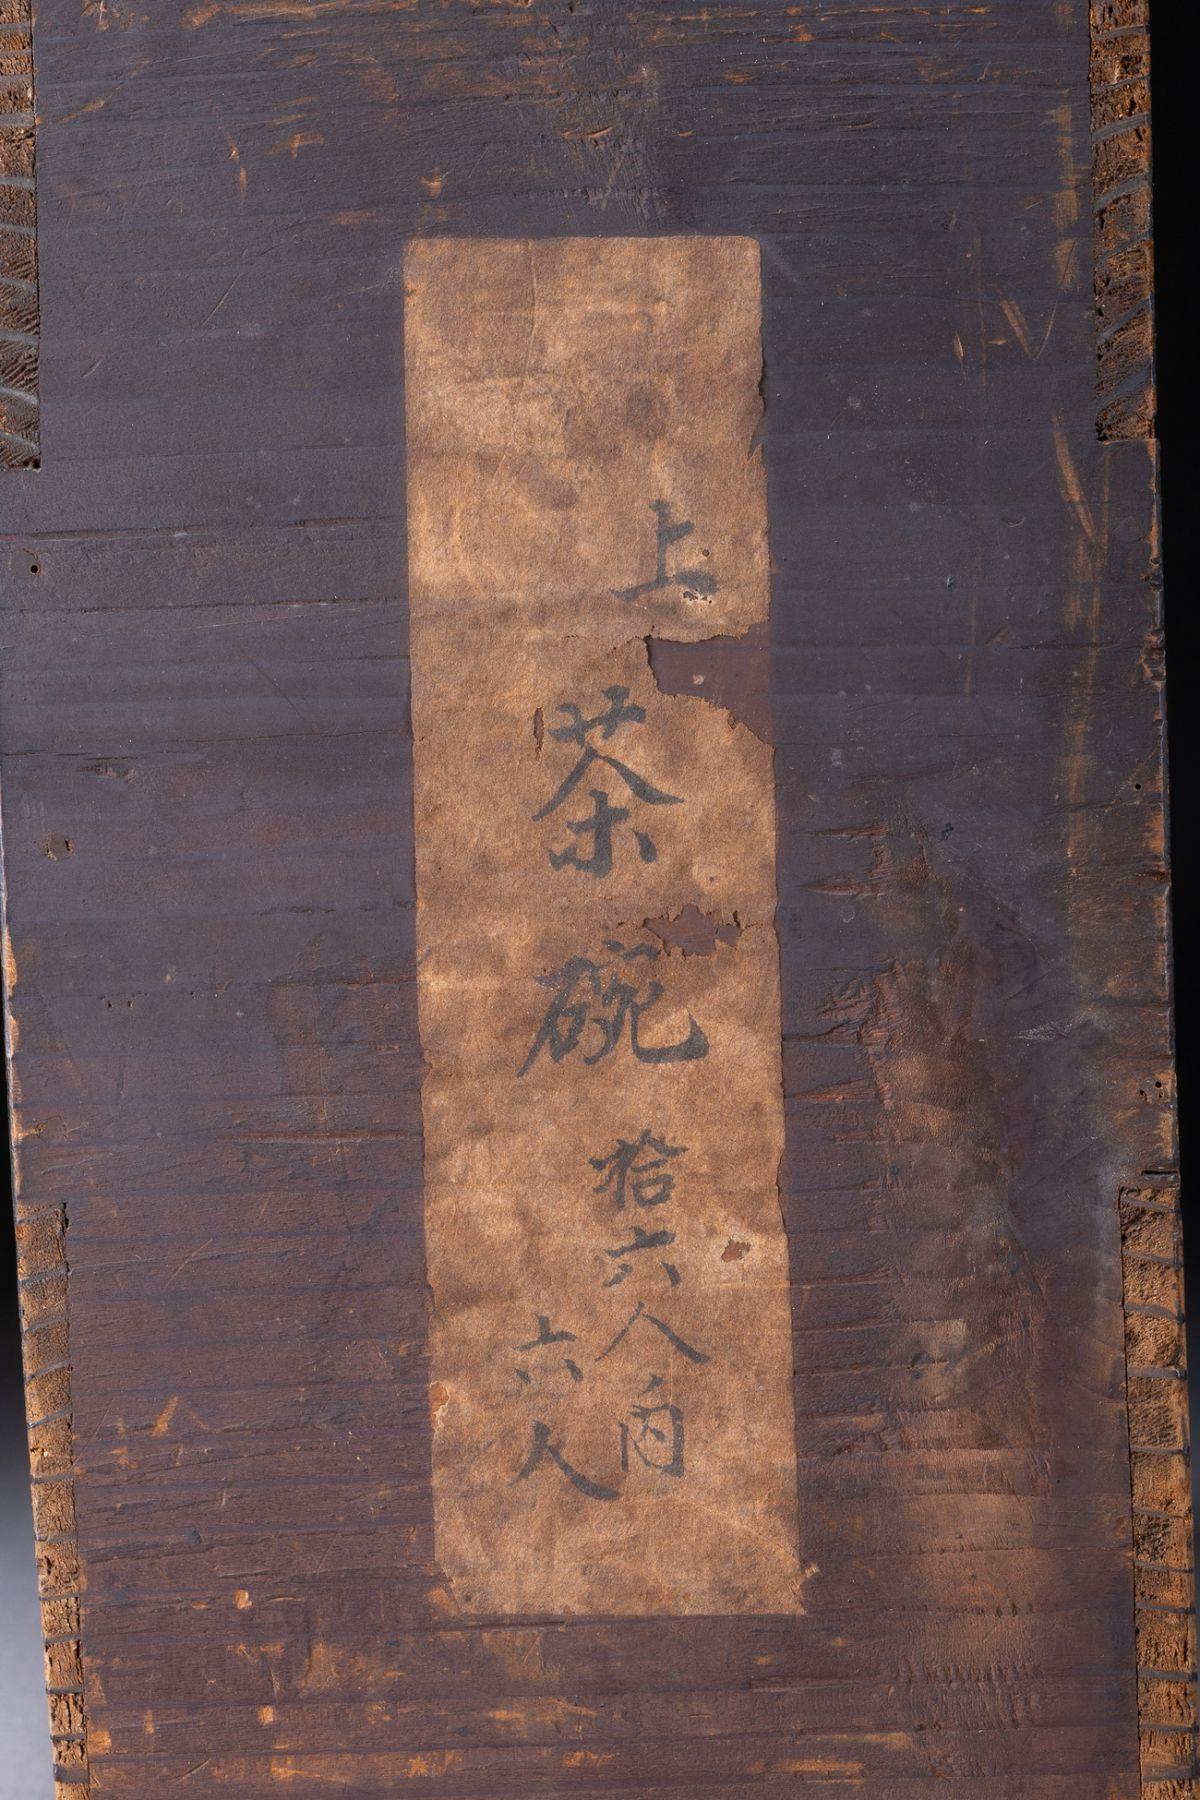 上
茶碗
拾六人内
六人